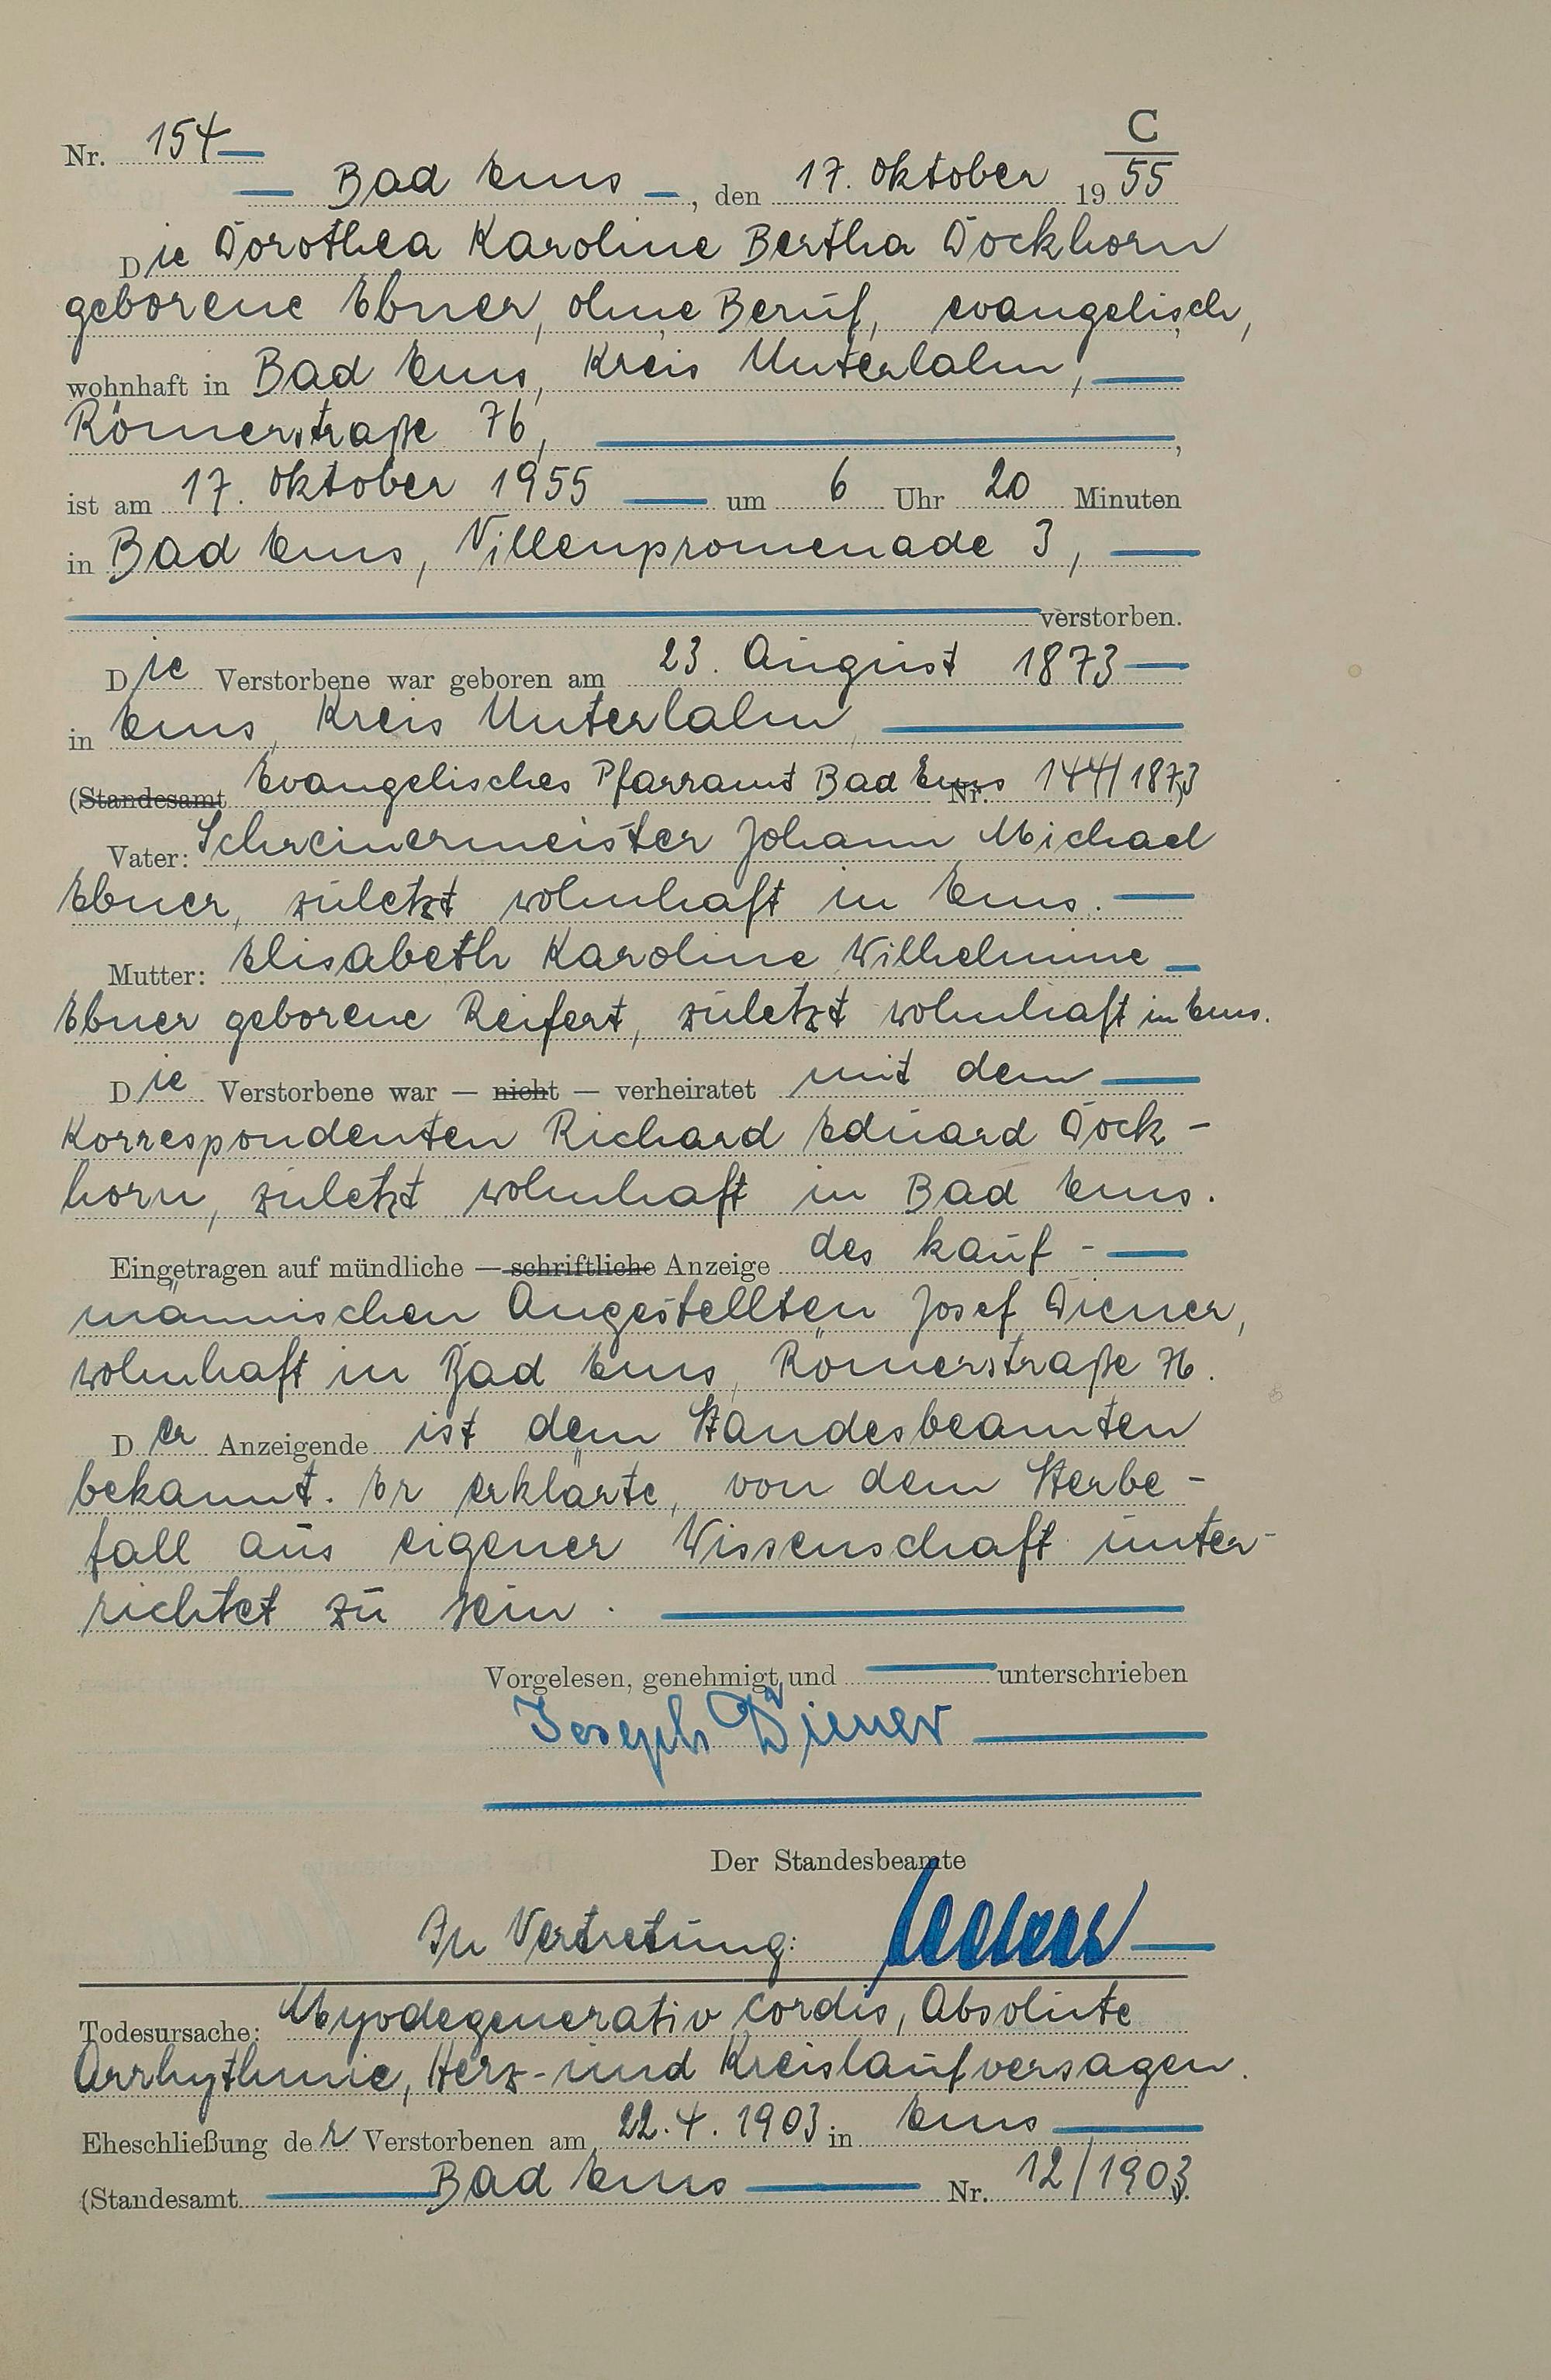 C
Nr. 154
Bad Ems, den 17. Oktober 1955
Die Dorothea Karoline Bertha Dockhorn
geborene Ebner, ohne Beruf, evangelisch,
wohnhaft in Bad Ems, Kreis Unterlahn,
Römerstraße 76,
ist am 17. Oktober 1955 um 6 Uhr 20 Minuten
in Bad Ems, Villenpromenade 3,
verstorben.
Die Verstorbene war geboren am 23. August 1873
in Ems, Kreis Unterlahn,
(Standesamt Evangelisches Pfarramt Bad Ems Nr. 144/1873)
Vater: Schreinermeister Johann Michael
Ebner, zuletzt wohnhaft in Ems.
Mutter: Elisabeth Karoline Wilhelmine
Ebner geborene Reifert, zuletzt wohnhaft in Ems.
Die Verstorbene war — nicht — verheiratet mit dem
Korrespondenten Richard Eduard Dock-
horn, zuletzt wohnhaft in Bad Ems.
Eingetragen auf mündliche — schriftliche Anzeige des kauf-
männischen Angestellten Josef Diener,
wohnhaft in Bad Ems, Römerstraße 76.
Der Anzeigende ist dem Standesbeamten
bekannt. Er erklärte, von dem Sterbe-
fall aus eigener Wissenschaft unter-
richtet zu sein.
Vorgelesen, genehmigt und unterschrieben
Joseph Diener
Der Standesbeamte
In Vertretung:
Todesursache: Myodegenerativ cordis, Absolute
Arrhythmie, Herz- und Kreislaufversagen.
Eheschließung der Verstorbenen am 22.4.1903 in Ems
(Standesamt Bad Ems Nr. 12/1903)